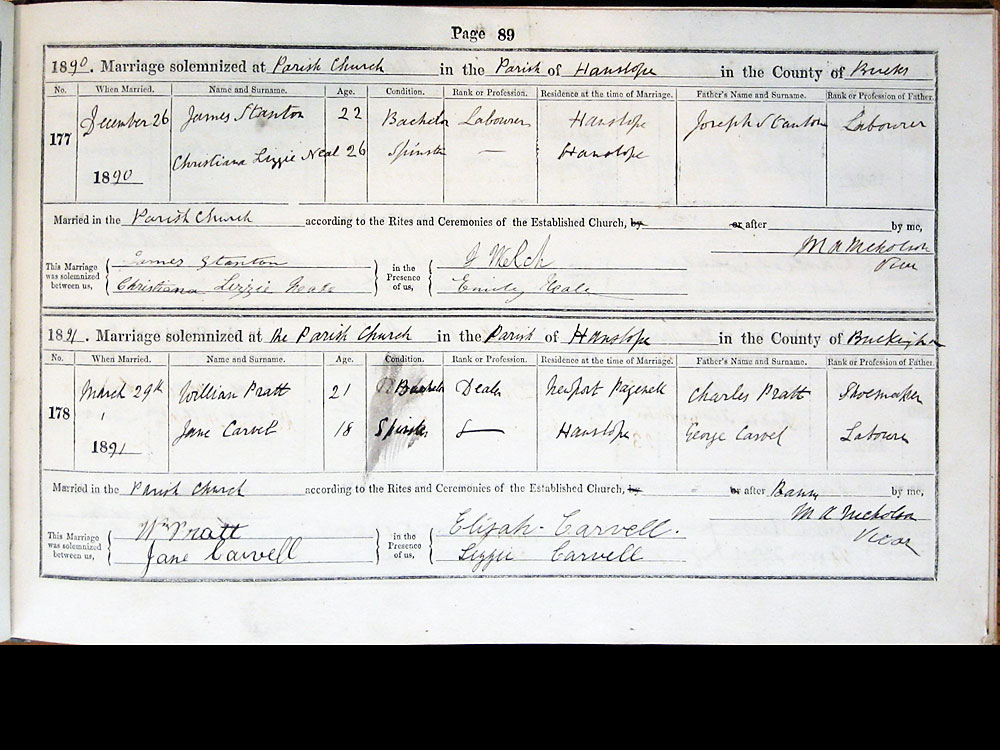 Page 89
1890. Marriage solemnized at Parish Church in the Parish of Hanslope in the County of Bucks
No. When Married. Name and Surname. Age. Condition. Rank or Profession. Residence at the time of Marriage. Father's Name and Surname. Rank or Profession of Father.
177 December 26 James Stanton 22 Bachelor Labourer Hanslope Joseph Stanton Labourer
Christiana Lizzie Neal 26 Spinster — Hanslope
1890
Married in the Parish Church according to the Rites and Ceremonies of the Established Church, by or after by me,
M A Nicholson
Vicar
This Marriage was solemnized between us, James Stanton in the Presence of us, J Welch
Christiana Lizzie Neale Emily Neale
1891. Marriage solemnized at the Parish Church in the Parish of Hanslope in the County of Buckingham
No. When Married. Name and Surname. Age. Condition. Rank or Profession. Residence at the time of Marriage. Father's Name and Surname. Rank or Profession of Father.
178 March 29th William Pratt 21 Bachelor Dealer Newport Pagnell Charles Pratt Shoemaker
1891 Jane Carvel 18 Spinster — Hanslope George Carvel Labourer
Married in the Parish Church according to the Rites and Ceremonies of the Established Church, by or after Banns by me,
M A Nicholson
Vicar
This Marriage was solemnized between us, Wm Pratt in the Presence of us, Elijah Carvell.
Jane Carvell Lizzie Carvell